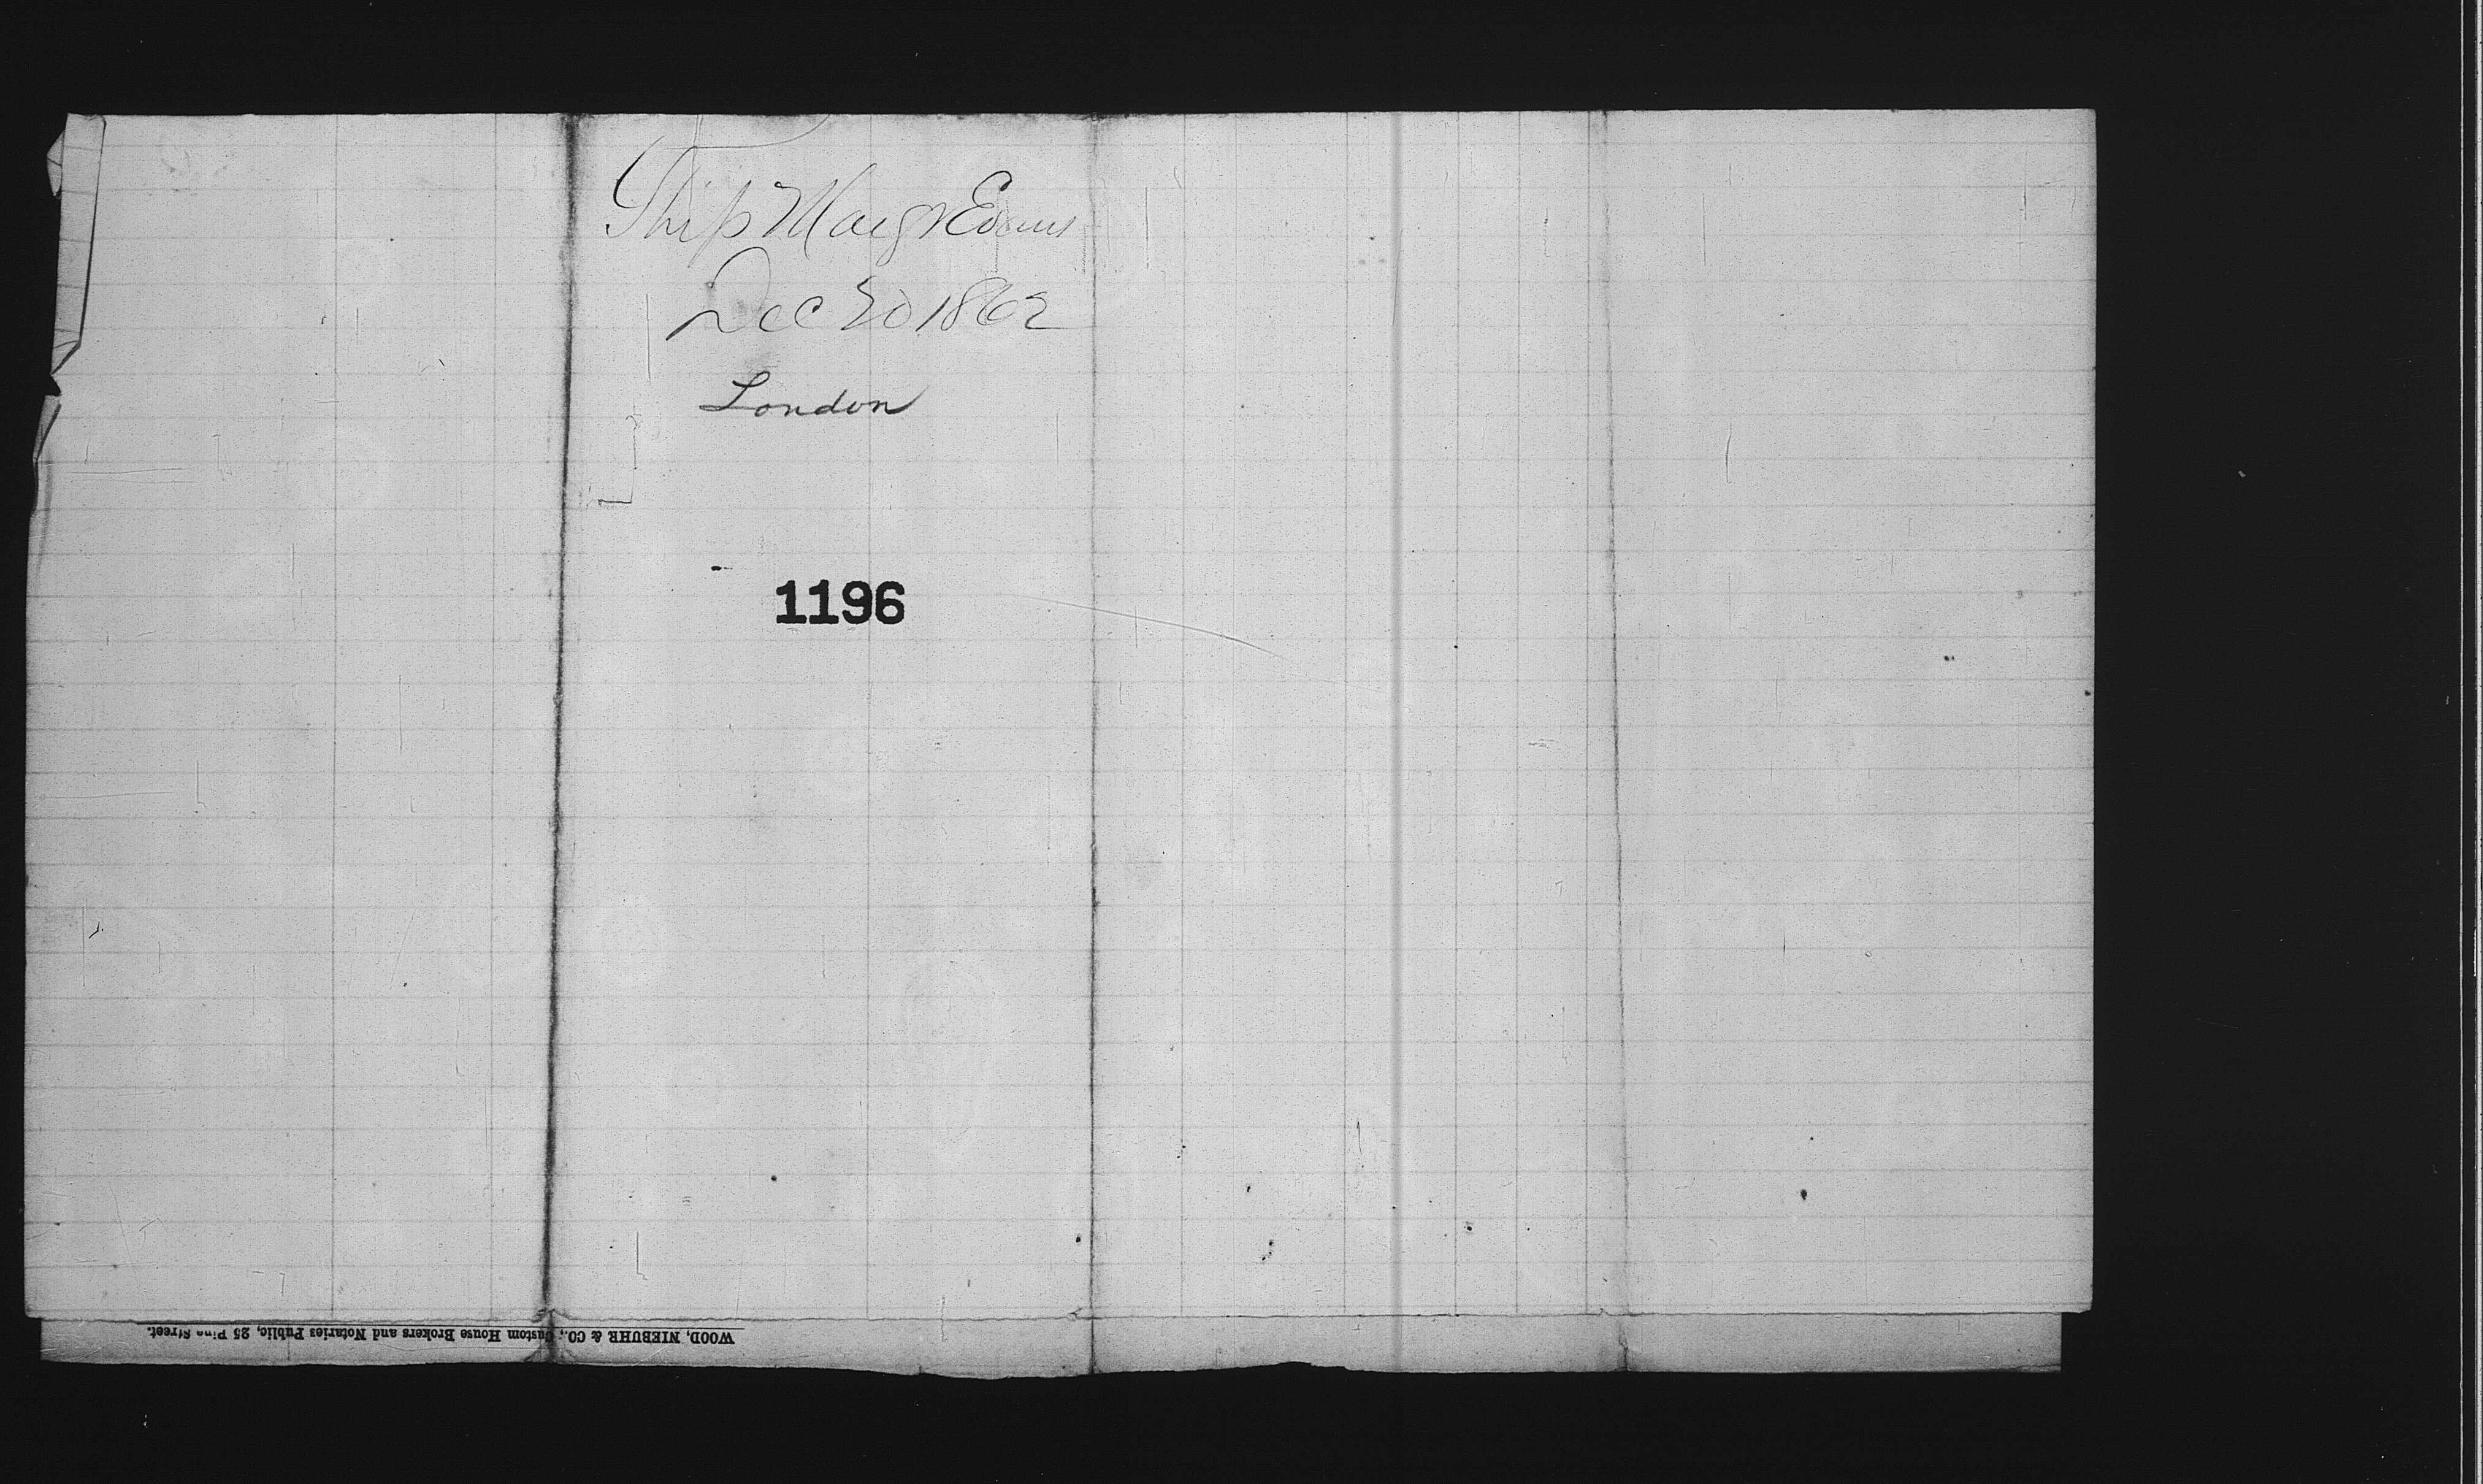 Ship Margt Evans
Dec 20 1862
London
1196
WOOD, NIEBUHR & CO., Custom House Brokers and Notaries Public, 25 Pine Street.